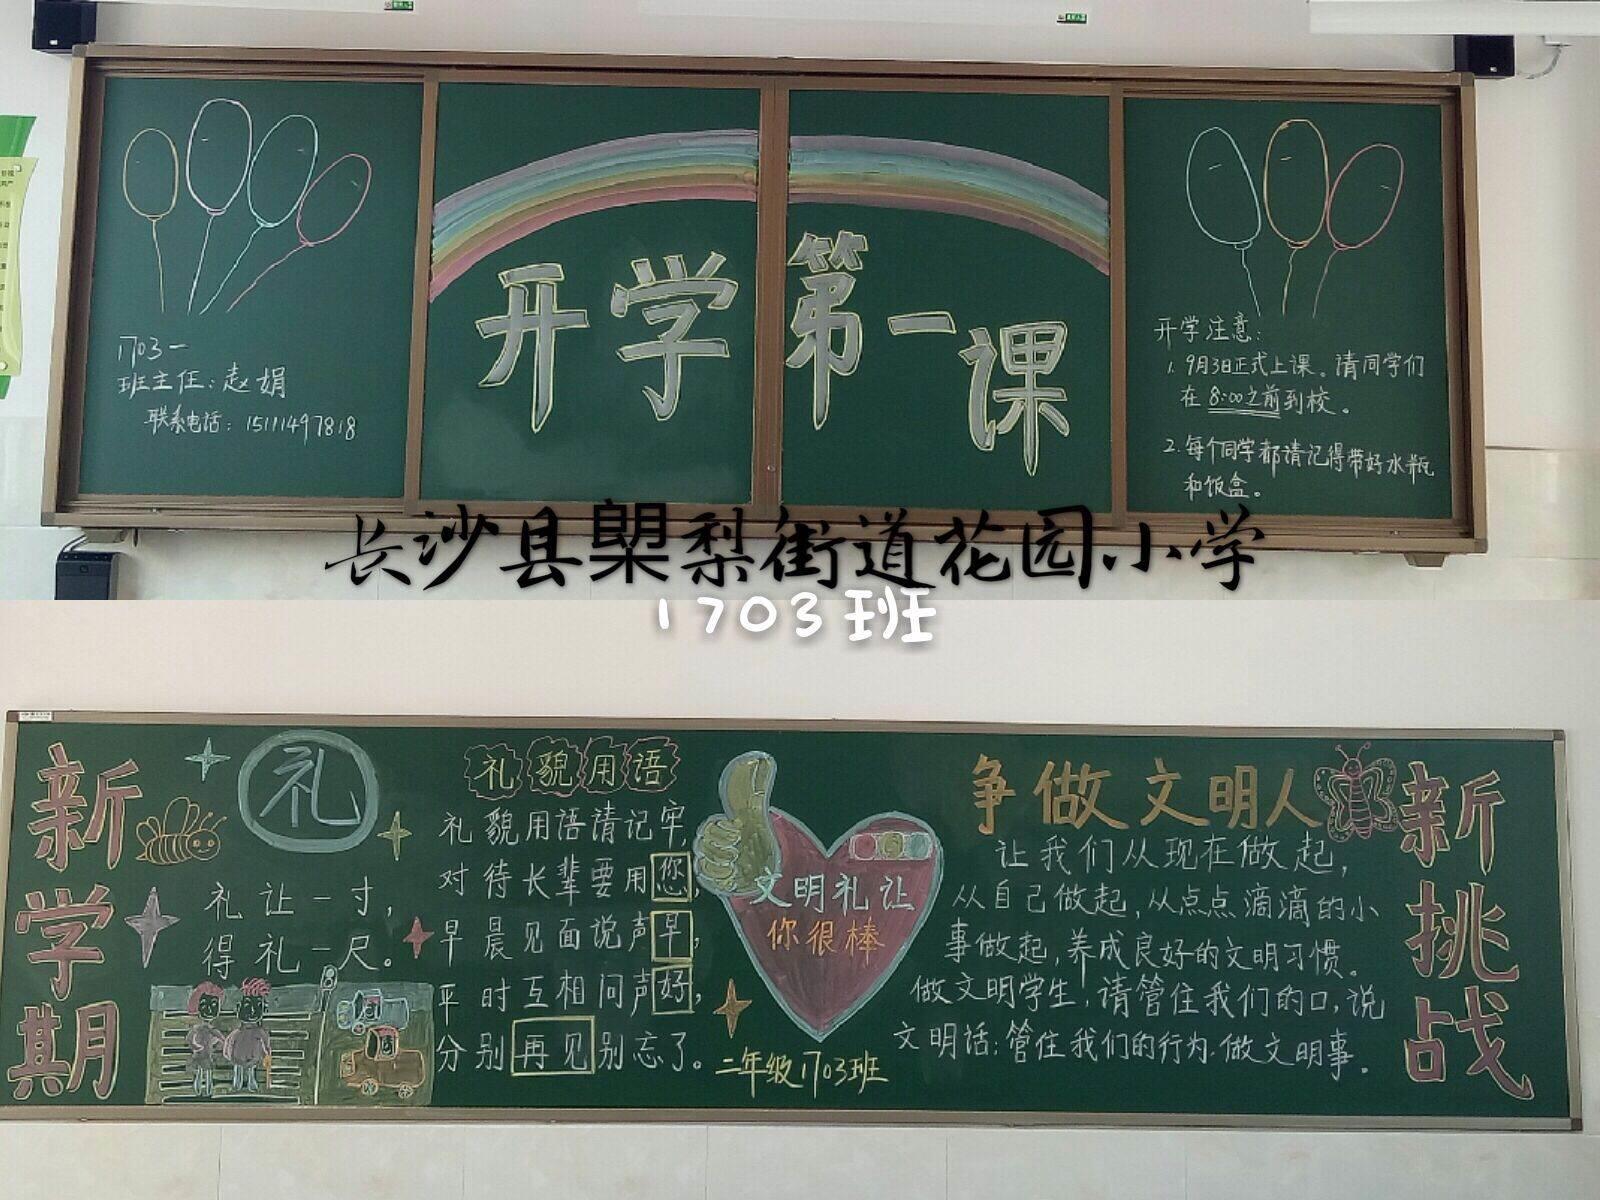 开学第一课
1703一
班主任：赵娟
联系电话：15111497818
开学注意：
1. 9月3日正式上课。请同学们
在8:00之前到校。
2. 每个同学都请记得带好水瓶
和饭盒。
长沙县㮾梨街道花园小学
1703班
新学期
礼
礼让一寸，
得礼一尺。
礼貌用语
礼貌用语请记牢，
对待长辈要用您，
早晨见面说声早；
平时互相问声好，
分别再见别忘了。
文明礼让
你很棒
二年级1703班
争做文明人
让我们从现在做起，
从自己做起，从点点滴滴的小
事做起，养成良好的文明习惯。
做文明学生，请管住我们的口，说
文明话；管住我们的行为，做文明事。
新挑战